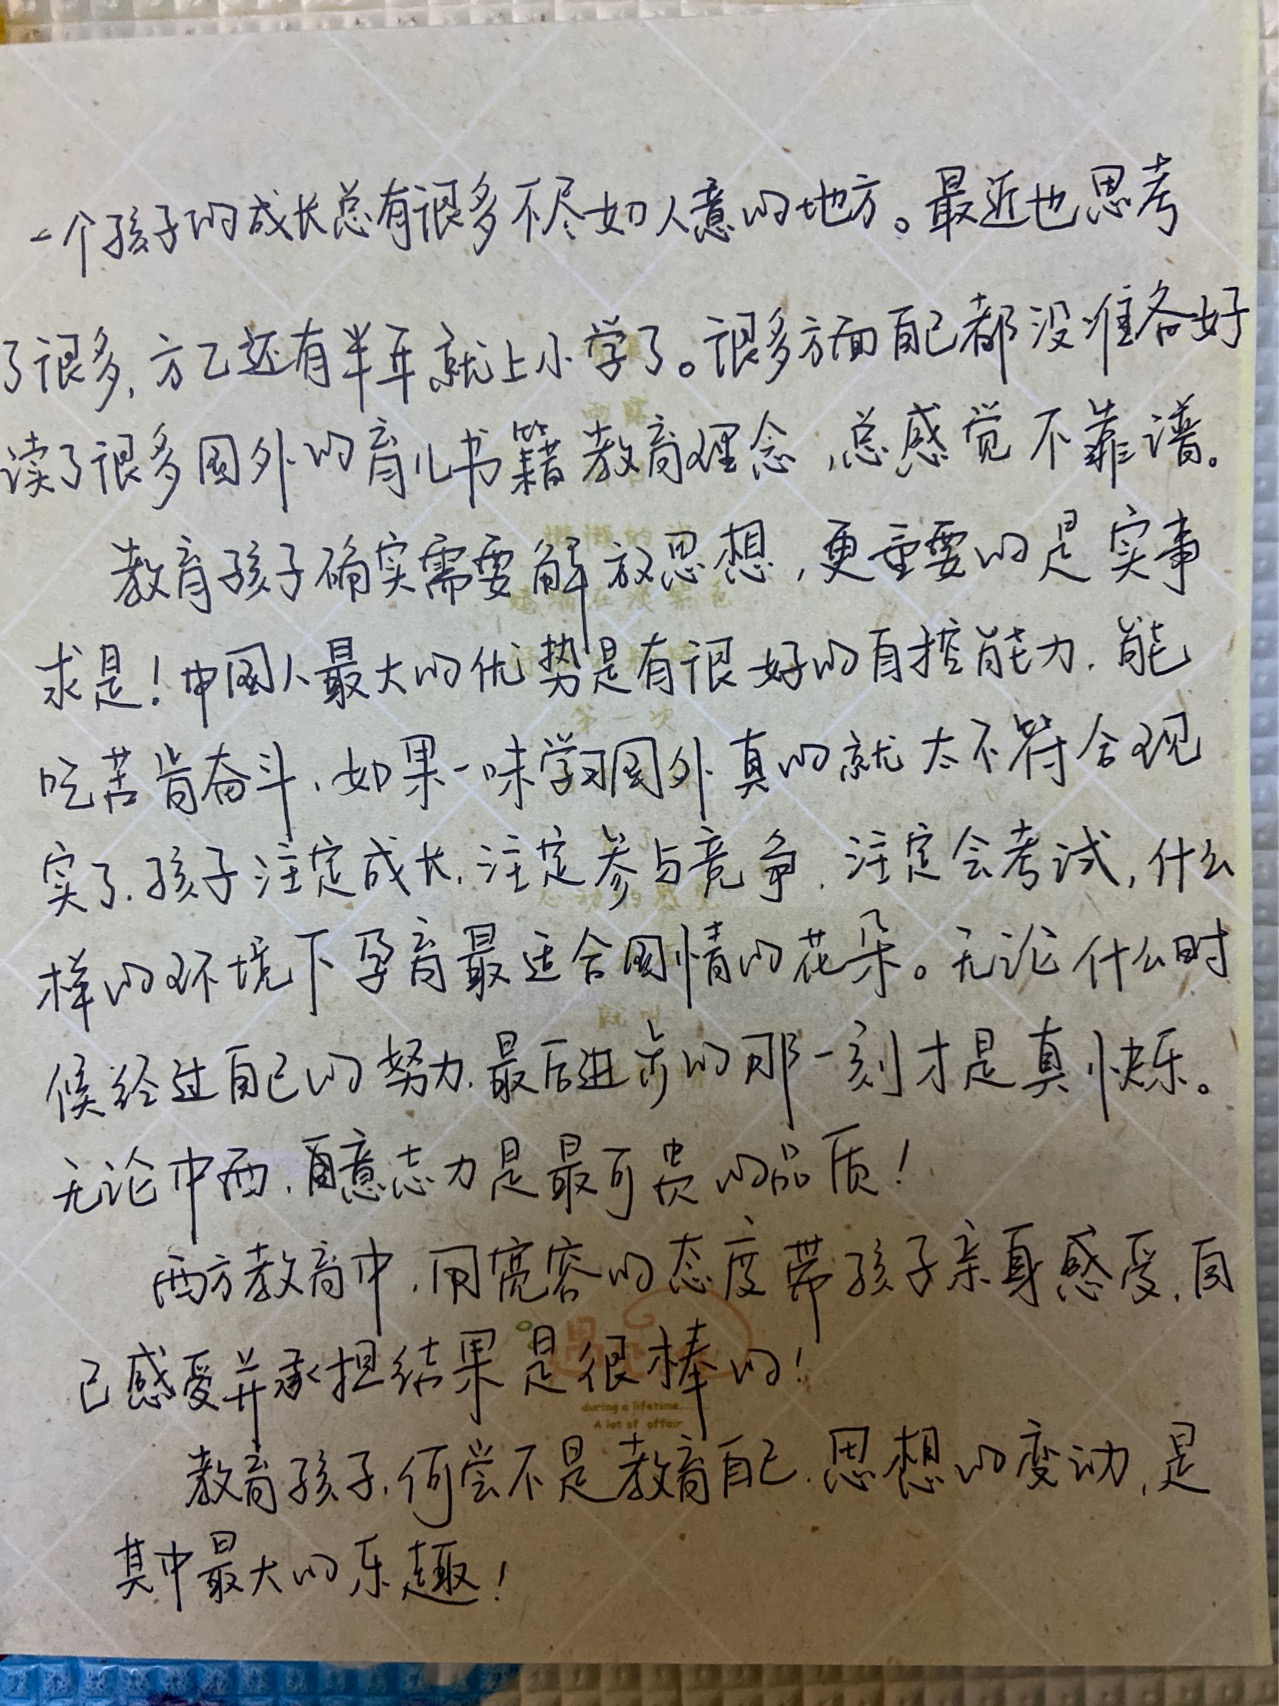 一个孩子的成长总有很多不尽如人意的地方。最近也思考
了很多,方乙还有半年就上小学了。很多方面自己都没准备好
读了很多国外的育儿书籍教育理念,总感觉不靠谱。
教育孩子确实需要解放思想,更重要的是实事
求是!中国人最大的优势是有很好的自控能力,能
吃苦肯奋斗,如果一味学习国外真的就太不符合现
实了,孩子注定成长,注定参与竞争,注定会考试,什么
样的环境下孕育最适合国情的花朵。无论什么时
候经过自己的努力,最后进步的那一刻才是真快乐。
无论中西,自意志力是最可贵的品质!
西方教育中,用宽容的态度带孩子亲身感受,自
己感受并承担结果是很棒的!
during a lifetime
A lot of affair
教育孩子,何尝不是教育自己,思想的变动,是
其中最大的乐趣!